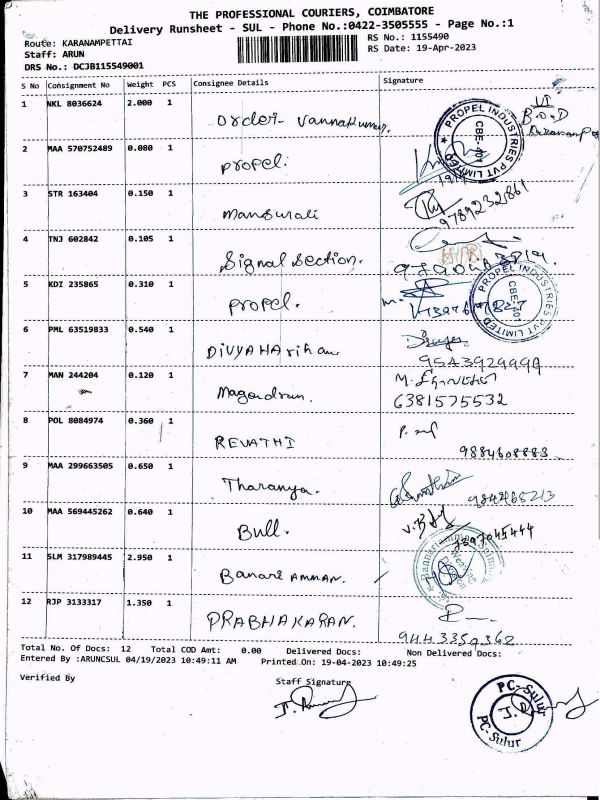 THE PROFESSIONAL COURIERS, COIMBATORE
Delivery Runsheet - SUL - Phone No.:0422-3505555 - Page No.:1
Route: KARANAMPETTAI
RS No.: 1155490
Staff: ARUN
RS Date: 19-Apr-2023
DRS No.: DCJB115549001
S No Consignment No Weight PCS Consignee Details Signature
1 NKL 8036624 2.000 1
order- Vannakumar.
PROPEL INDUSTRIES PVT LIMITED
CBE-401
2 MAA 570752489 0.080 1
propel.
3 STR 163404 0.150 1
Mansurali
9789232861
4 TNJ 602842 0.105 1
Signal Section.
5 KDI 235865 0.310 1
propel.
PROPEL INDUSTRIES PVT LIMITED
CBE-401
6 PML 63519833 0.540 1
DIVYA HARIhan
9543929999
7 MAN 244204 0.120 1
6381575532
8 POL 8084974 0.360 1
REVATHI
9884608883
9 MAA 299663505 0.650 1
Tharanya.
10 MAA 569445262 0.640 1
Bull.
7397045444
11 SLM 317989445 2.950 1
Banari AMMAN.
12 RJP 3133317 1.350 1
PRABHAKARAN.
9443359362
Total No. Of Docs: 12 Total COD Amt: 0.00 Delivered Docs: Non Delivered Docs:
Entered By :ARUNCSUL 04/19/2023 10:49:11 AM Printed On: 19-04-2023 10:49:25
Verified By
Staff Signature
PC-Sulur
PC-Sulur